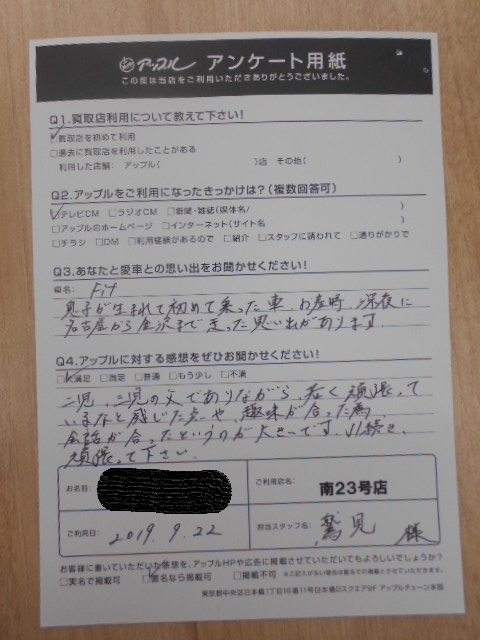 アップル アンケート用紙
この度は当店をご利用いただきありがとうございました。
Q1.買取店利用について教えて下さい!
☑買取店を初めて利用
□過去に買取店を利用したことがある
利用した店舗: アップル( )店 その他( )
Q2.アップルをご利用になったきっかけは?(複数回答可)
☑テレビCM □ラジオCM □新聞・雑誌(媒体名/ )
□アップルのホームページ □インターネット(サイト名 )
□チラシ □DM □利用経験があるので □紹介 □スタッフに誘われて □通りがかりで
Q3.あなたと愛車との思い出をお聞かせください!
車名: Fit
息子が生まれて初めて乗った車、お産時、深夜に
名古屋から金沢まで走った思い出があります。
Q4.アップルに対する感想をぜひお聞かせください!
☑大満足 □満足 □普通 □もう少し □不満
二児、三児の父でありながら、若く頑張って
いるなと感じた点や、趣味が合った為、
会話が合ったというのが大きいです。引続き
頑張って下さい。
お名前:
ご利用店名: 南23号店
ご利用日: 2019.9.22
担当スタッフ名: 鷲見 様
お客様に書いていただいた感想を、アップルHPや広告に掲載させていただいてもよろしいでしょうか?
□実名で掲載可 ☑匿名なら掲載可 □掲載不可 ※ご記入がない場合は匿名での掲載とさせていただきます。
東京都中央区日本橋1丁目16番11号日本橋Dスクエア9F アップルチェーン本部